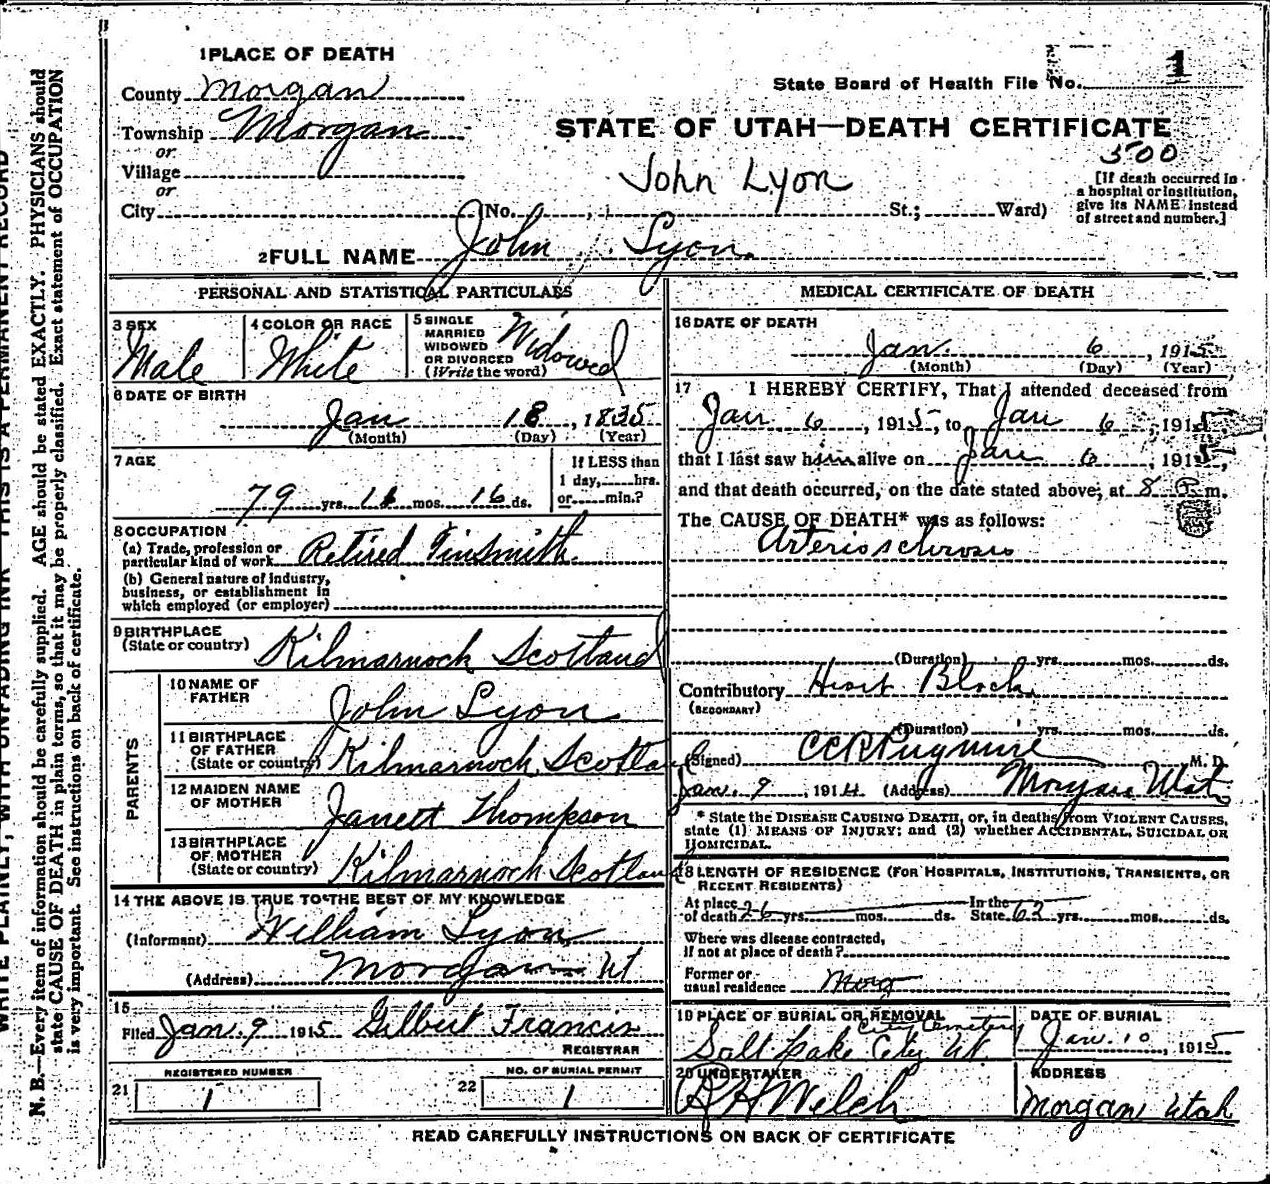 1 PLACE OF DEATH
County Morgan
Township Morgan
or
Village
or
City
State Board of Health File No. 1
STATE OF UTAH—DEATH CERTIFICATE
500
John Lyon
(No. St.; Ward)
[If death occurred in
a hospital or institution,
give its NAME instead
of street and number.]
2 FULL NAME John Lyon.
PERSONAL AND STATISTICAL PARTICULARS
3 SEX
Male
4 COLOR OR RACE
White
5 SINGLE
MARRIED
WIDOWED
OR DIVORCED
(Write the word)
Widowed
6 DATE OF BIRTH
Jan 18, 1835
(Month) (Day) (Year)
7 AGE
79 yrs. 11 mos. 16 ds.
If LESS than
1 day, hrs.
or min.?
8 OCCUPATION
(a) Trade, profession or
particular kind of work Retired Tinsmith.
(b) General nature of industry,
business, or establishment in
which employed (or employer)
9 BIRTHPLACE
(State or country) Kilmarnock Scotland
PARENTS
10 NAME OF
FATHER John Lyon
11 BIRTHPLACE
OF FATHER
(State or country) Kilmarnock Scotland
12 MAIDEN NAME
OF MOTHER Janett Thompson
13 BIRTHPLACE
OF MOTHER
(State or country) Kilmarnock Scotland
14 THE ABOVE IS TRUE TO THE BEST OF MY KNOWLEDGE
(Informant) William Lyon
(Address) Morgan Ut
15
Filed Jan. 9 1915 Gilbert Francis
REGISTRAR
21 REGISTERED NUMBER
1
22 NO. OF BURIAL PERMIT
1
MEDICAL CERTIFICATE OF DEATH
16 DATE OF DEATH
Jan. 6, 1915
(Month) (Day) (Year)
17 I HEREBY CERTIFY, That I attended deceased from
Jan 6, 1915, to Jan 6, 1915
that I last saw him alive on Jan 6, 1915,
and that death occurred, on the date stated above, at 8 P. m.
The CAUSE OF DEATH* was as follows:
Arteriosclrosis
(Duration) yrs. mos. ds.
Contributory Heart Block
(SECONDARY)
(Duration) yrs. mos. ds.
(Signed) M. D.
Jan. 9, 1914 (Address) Morgan Utah
* State the DISEASE CAUSING DEATH, or, in deaths from VIOLENT CAUSES,
state (1) MEANS OF INJURY; and (2) whether ACCIDENTAL, SUICIDAL OR
HOMICIDAL.
18 LENGTH OF RESIDENCE (FOR HOSPITALS, INSTITUTIONS, TRANSIENTS, OR
RECENT RESIDENTS)
At place
of death 26 yrs. mos. ds. In the
State 62 yrs. mos. ds.
Where was disease contracted,
if not at place of death?
Former or
usual residence Morg
19 PLACE OF BURIAL OR REMOVAL
City Cemetery
Salt Lake City Ut.
DATE OF BURIAL
Jan. 10, 1915
20 UNDERTAKER
Welch
ADDRESS
Morgan Utah
READ CAREFULLY INSTRUCTIONS ON BACK OF CERTIFICATE
WRITE PLAINLY, WITH UNFADING INK—THIS IS A PERMANENT RECORD
N. B.—Every item of information should be carefully supplied. AGE should be stated EXACTLY. PHYSICIANS should
state CAUSE OF DEATH in plain terms, so that it may be properly classified. Exact statement of OCCUPATION
is very important. See instructions on back of certificate.